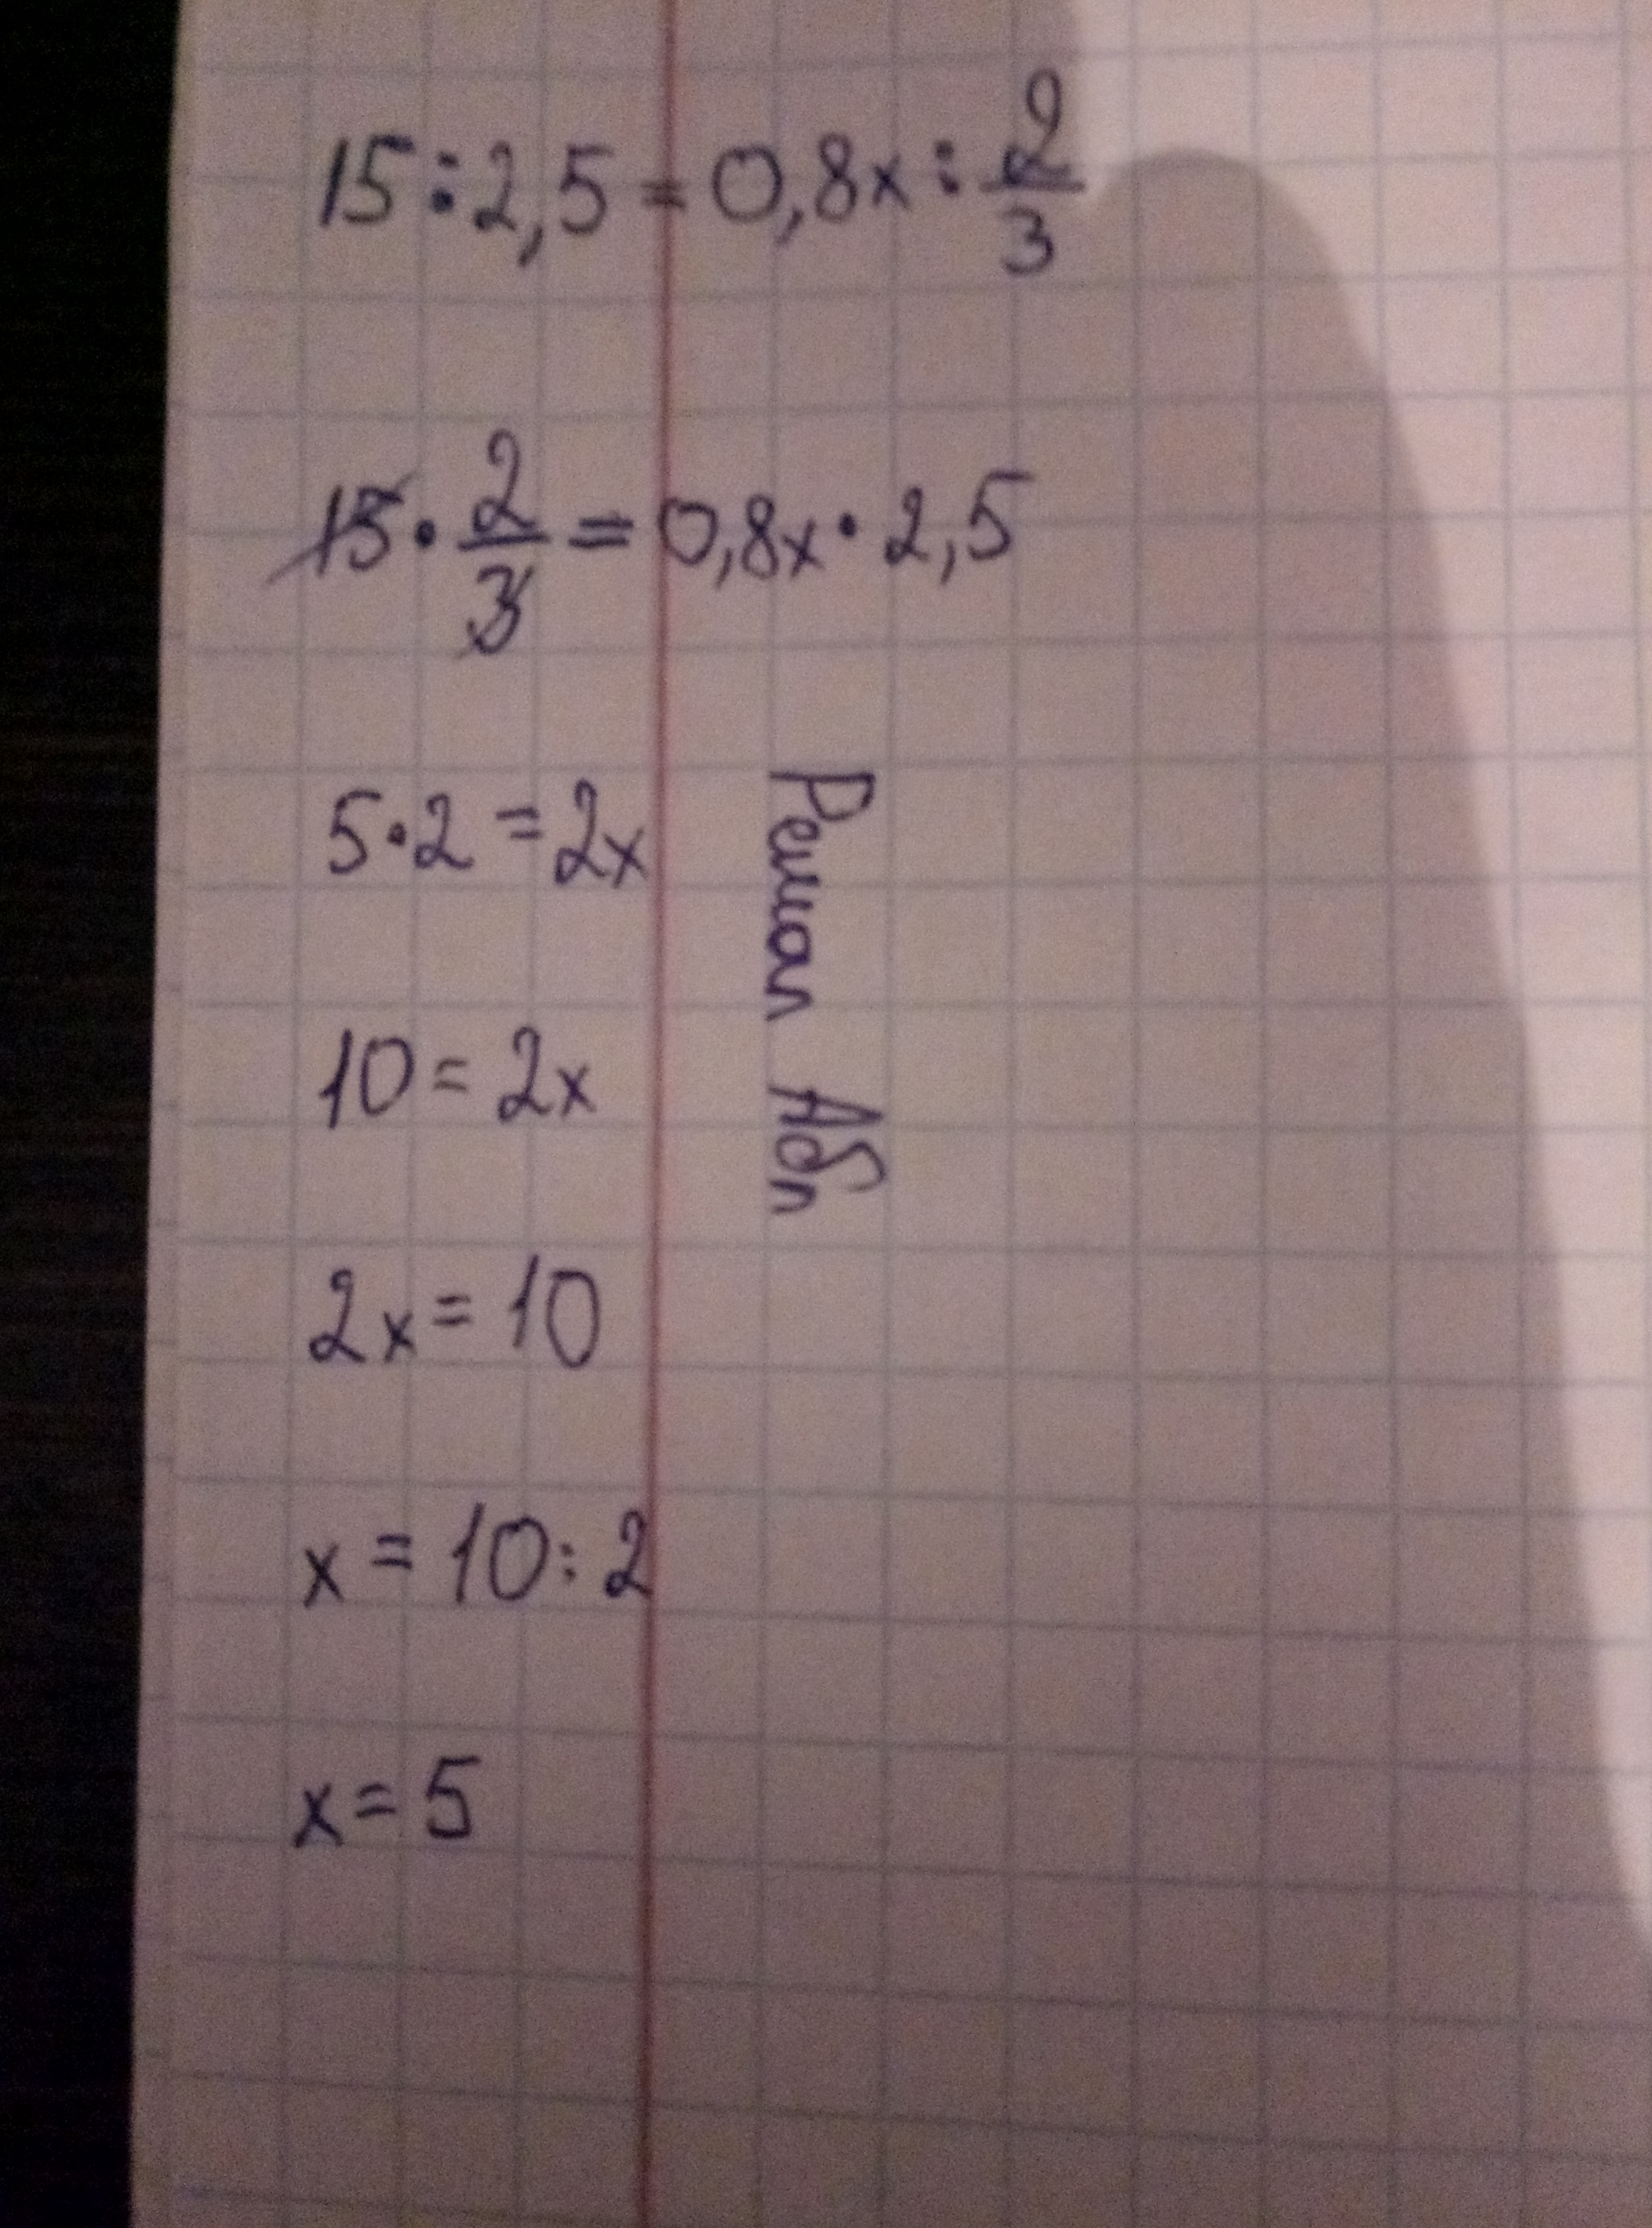 15:2,5=0,8x:2/3
15·2/3=0,8x·2,5
5·2=2x
10=2x
2x=10
x=10:2
x=5
Решал Абл